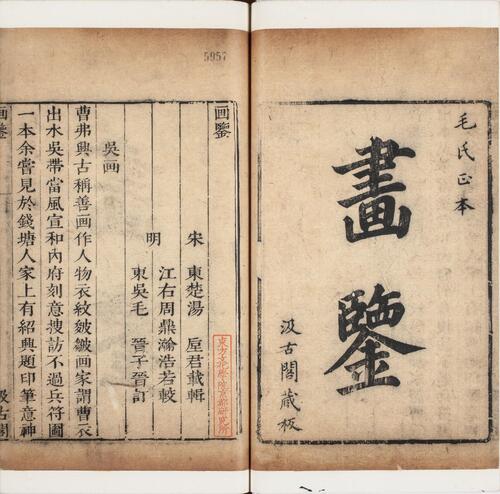 毛氏正本
畫鑒
汲古閣藏板
5957
画鑒
宋 東楚湯 垕君載輯
江右周鼎瀚浩若較
明
東吳毛 晉子晉訂
吳画
曹弗興古稱善画作人物衣紋皺皺画家謂曹衣
出水吳帶當風宣和內府刻意搜訪不過兵符圖
一本余嘗見於錢塘人家上有紹興題印筆意神
画鑒
汲古閣